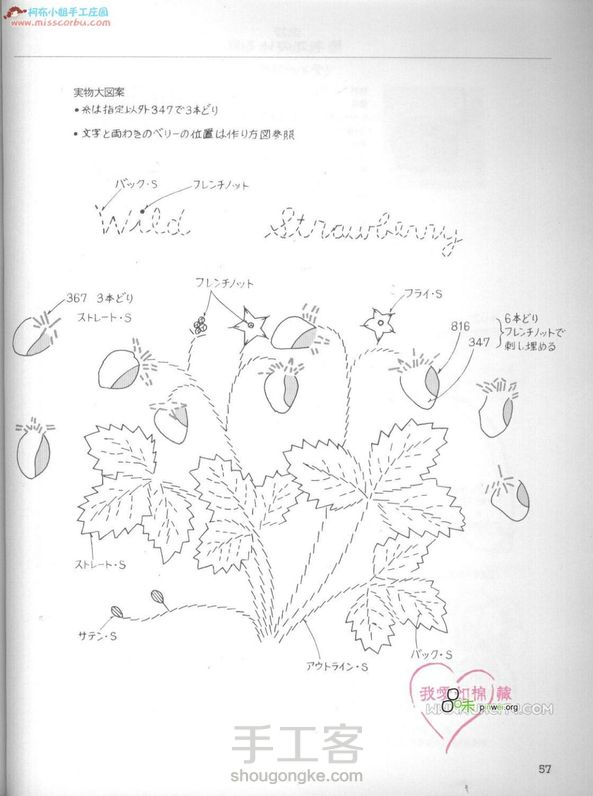 柯布小姐手工庄园
www.misscorbu.com
実物大図案
•糸は指定以外347で3本どり
•文字と両わきのベリーの位置は作り方図参照
バック・S
フレンチノット
Wild Strawberry
367 3本どり
ストレート・S
フレンチノット
フライ・S
816
347
6本どり
フレンチノットで
刺し埋める
ストレート・S
サテン・S
アウトライン・S
バック・S
我爱
棉
藏
.COM
手工客
shougongke.com
57